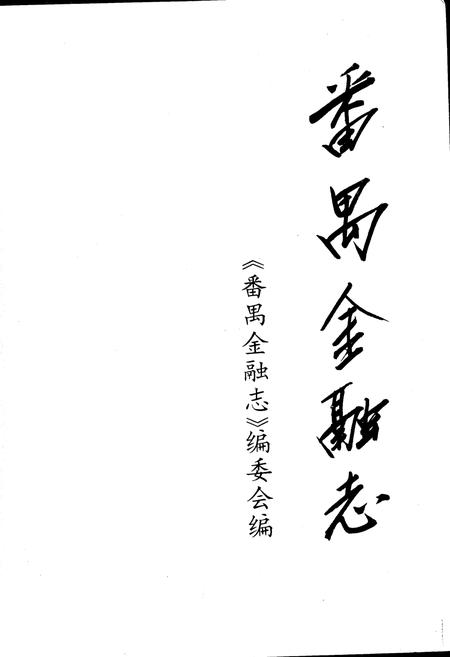 番禺金融志
《番禺金融志》编委会编